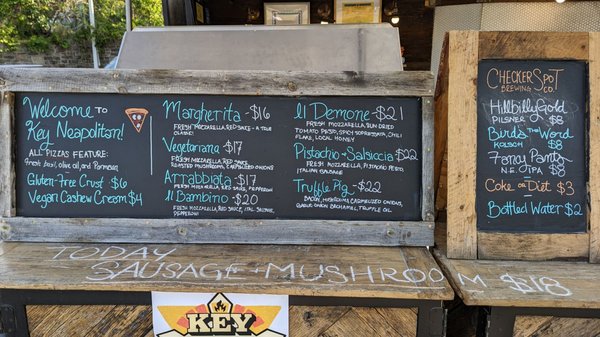 Welcome to
Key Neapolitan!
ALL PIZZAS FEATURE:
Fresh basil, olive oil, and Parmesan
Gluten-Free Crust $6
Vegan Cashew Cream $4
Margherita - $16
FRESH MOZZARELLA, RED SAUCE - A TRUE
CLASSIC!
Vegetariana - $17
FRESH MOZZARELLA, RED SAUCE,
ROASTED MUSHROOMS, CARAMELIZED ONIONS
Arrabbiata - $17
FRESH MOZZARELLA, RED SAUCE, PEPPERONI
Il Bambino - $20
FRESH MOZZARELLA, RED SAUCE, ITAL. SAUSAGE,
PEPPERONI
Il Demone - $21
FRESH MOZZARELLA, SUN DRIED
TOMATO PESTO, SPICY SOPPRESSATA, CHILI
FLAKE, LOCAL HONEY
Pistachio + Salsiccia $22
FRESH MOZZARELLA, PISTACHIO PESTO
ITALIAN SAUSAGE
Truffle Pig - $22
BACON, MUSHROOMS, CARAMELIZED ONIONS,
GARLIC ONION BECHAMEL, TRUFFLE OIL
CHECKERSPOT
BREWING CO.
Hillbilly Gold
PILSNER $8
Bird's the Word
KOLSCH $8
Fancy Pants
N.E. DIPA $8
Coke or Diet $3
Bottled Water $2
TODAY
SAUSAGE + MUSHROOM $18
KEY